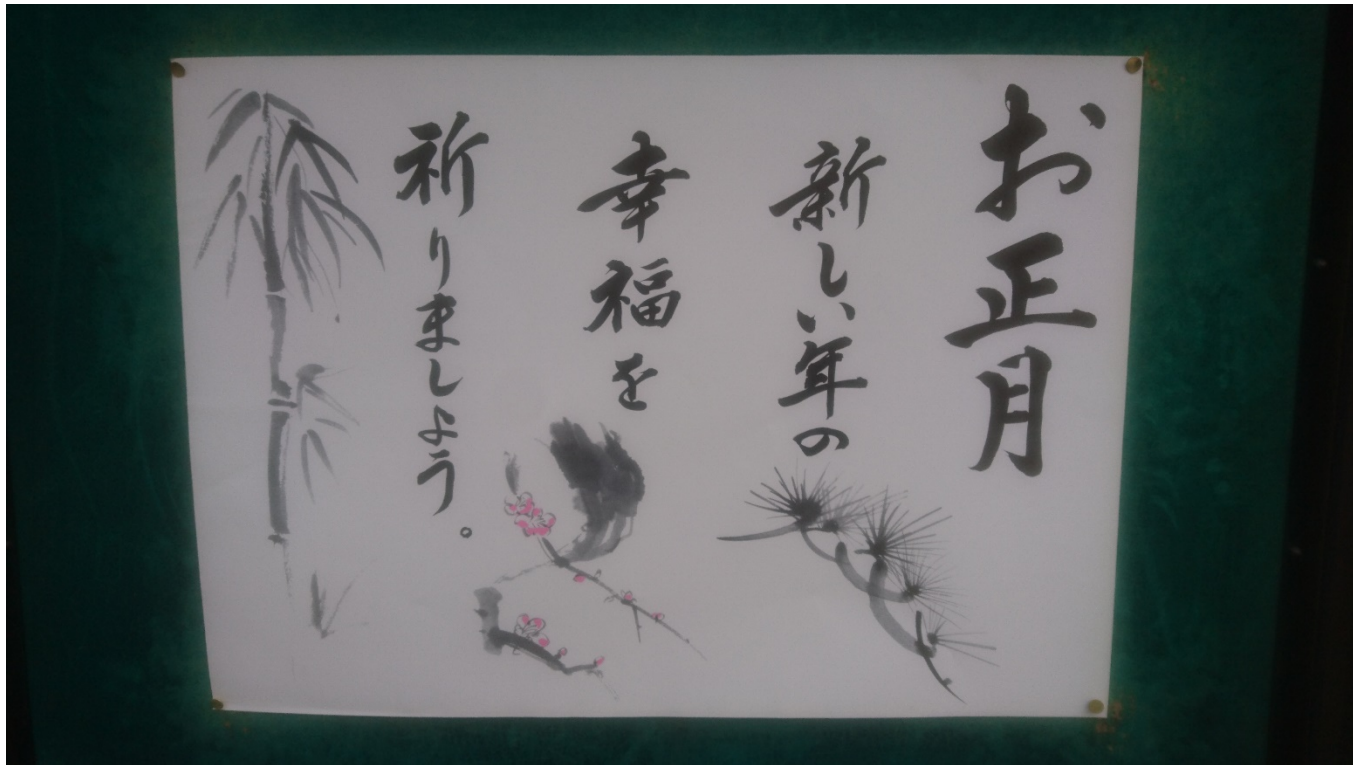 お正月
新しい年の
幸福を
祈りましょう。